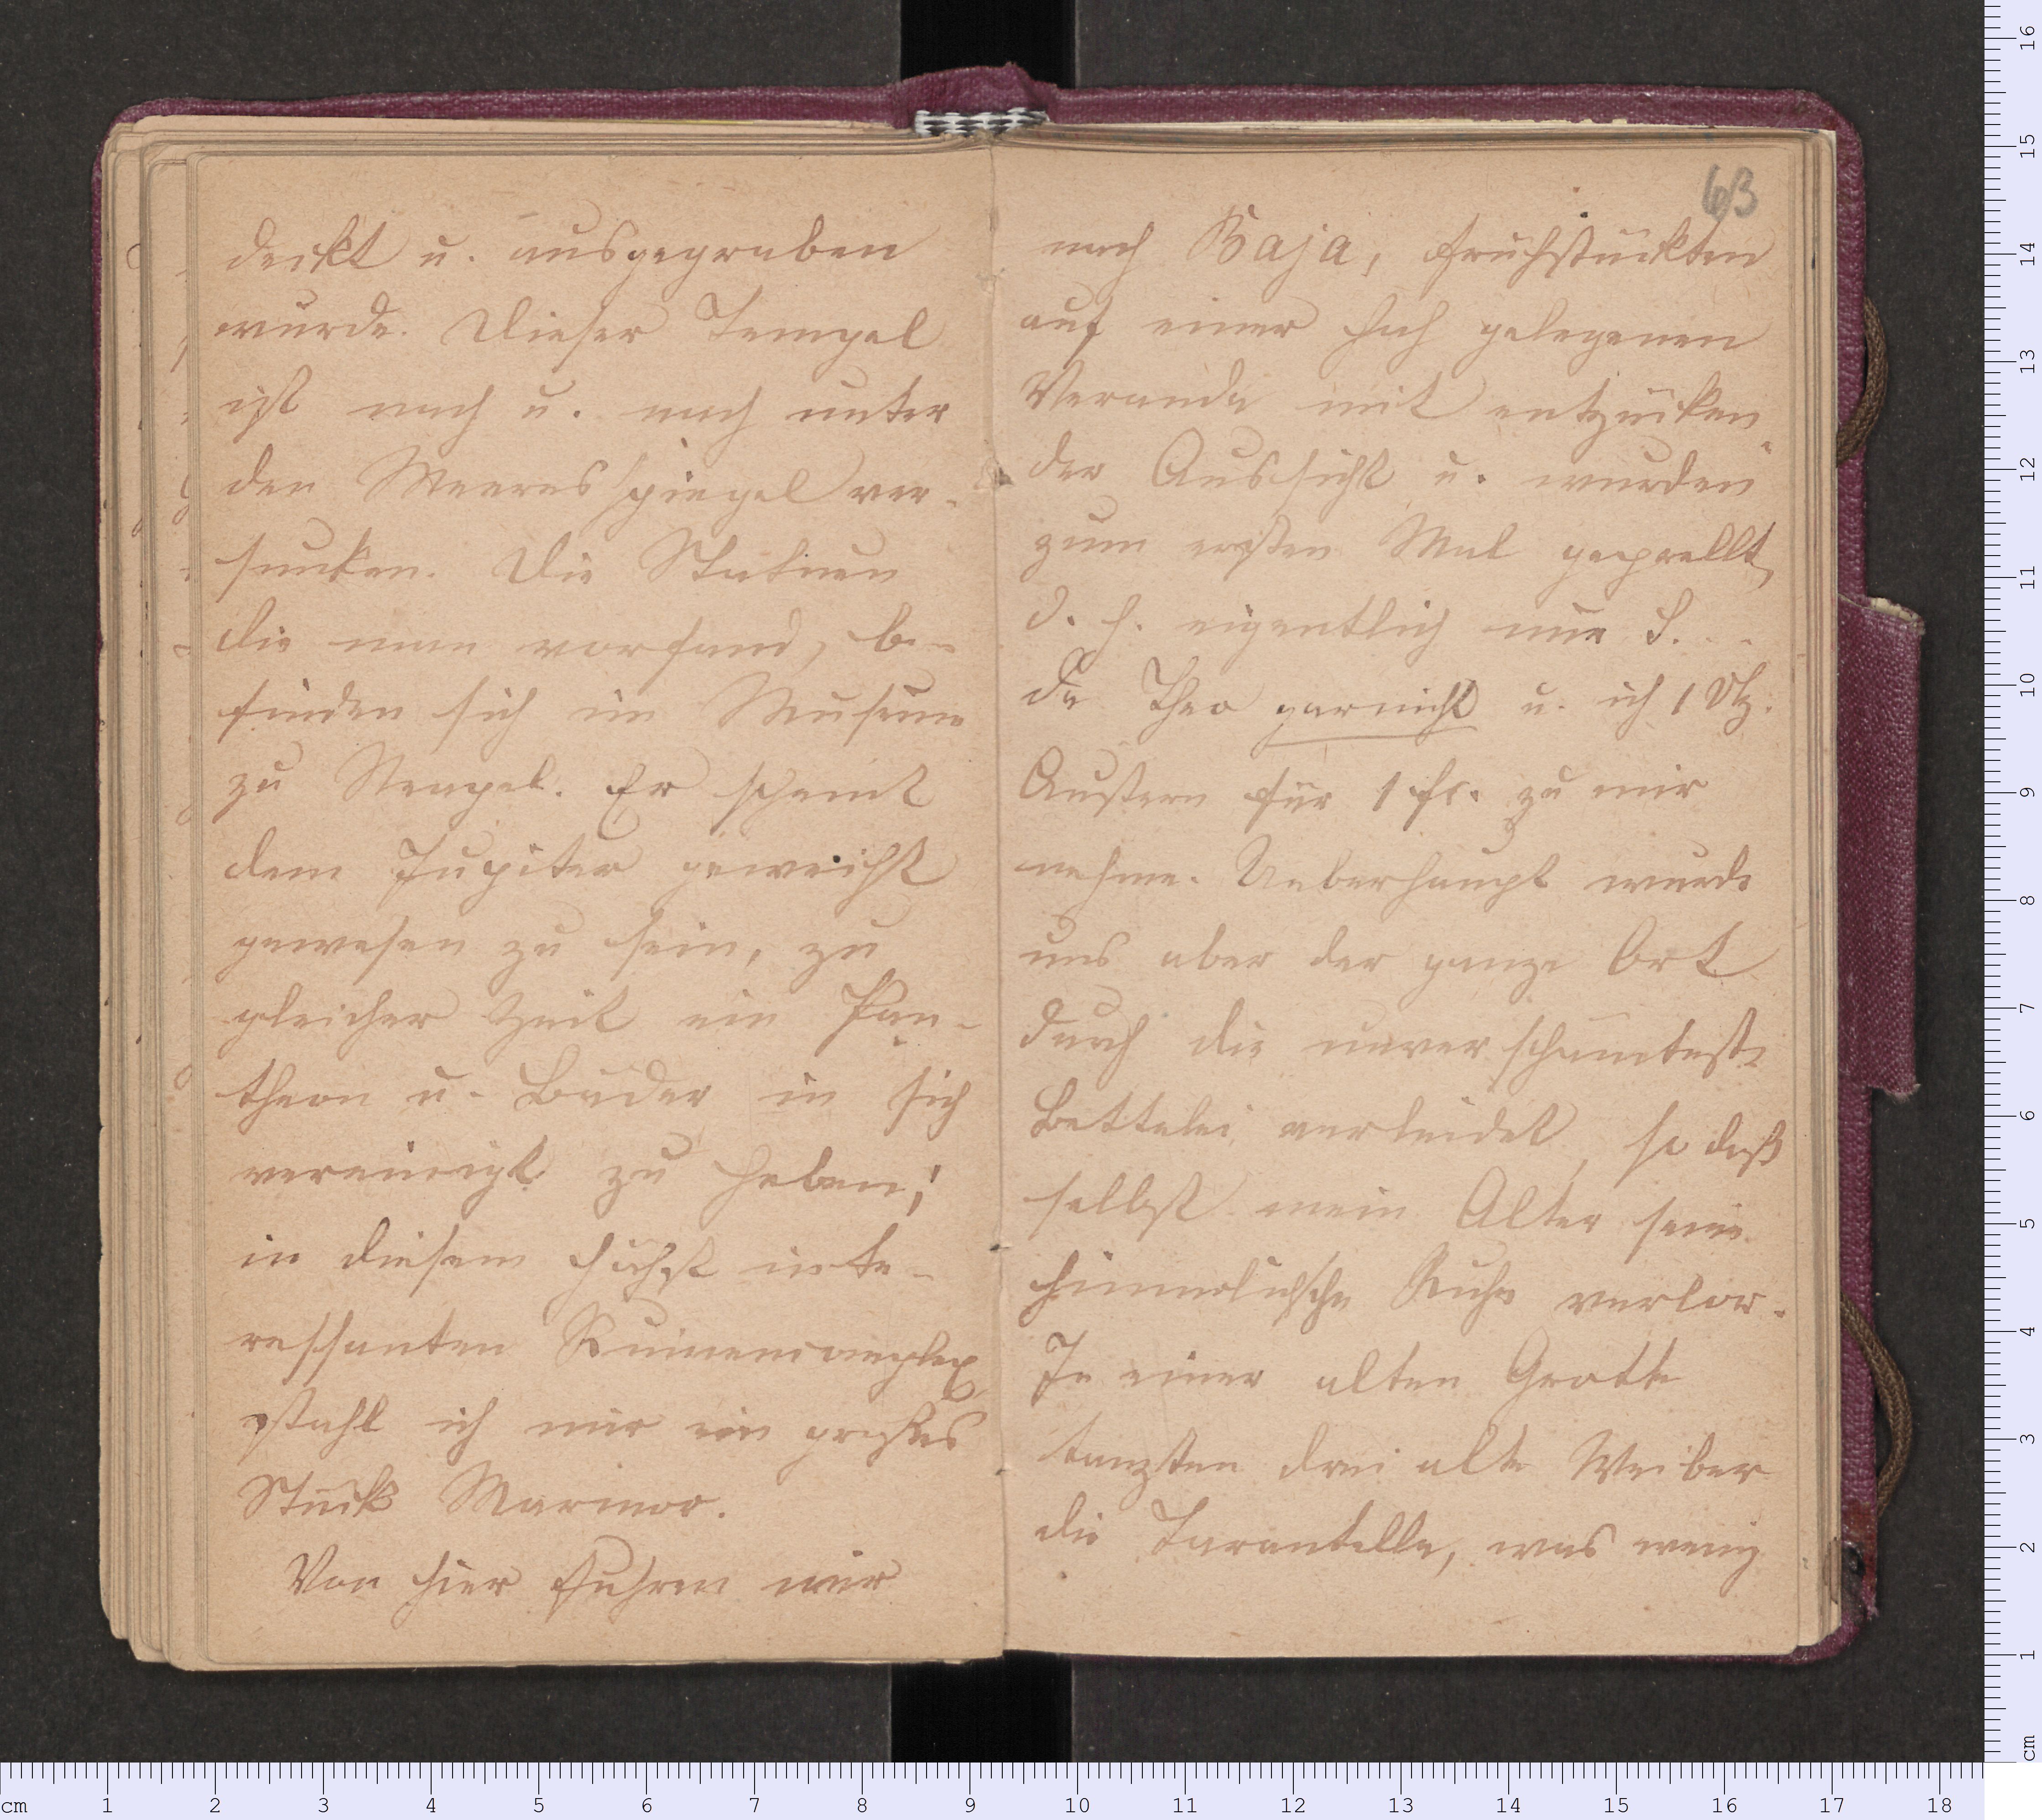 deckt u. ausgegraben
wurde. Dieser Tempel
ist nach u. nach unter
den Meeresspiegel ver-
sunken. Die Statuen
die man vorfand, be-
finden sich im Museum
zu Neapel. Er scheint
dem Jupiter geweiht
gewesen zu sein, zu
gleicher Zeit ein Pan-
theon u. Bäder in sich
vereinigt zu haben;
in diesem höchst inte-
ressanten Ruinencomplex
stahl ich mir ein großes
Stück Marmor.
Von hier fuhren wir
63
nach Baja, frühstückten
auf einer hoch gelegenen
Veranda mit entzücken-
der Aussicht u. wurden
zum ersten Mal geprellt,
d. h. eigentlich nur
da Theo garnicht u. ich 1 Dtz.
Austern für 1 fr. zu mir
nehme. Ueberhaupt wurde
uns aber der ganze Ort
durch die unverschämteste
Bettelei verleidet, so daß
selbst mein Alter seine
himmlische Ruhe verlor.
In einer alten Grotte
tanzten drei alte Weiber
die Tarantella, was wenig